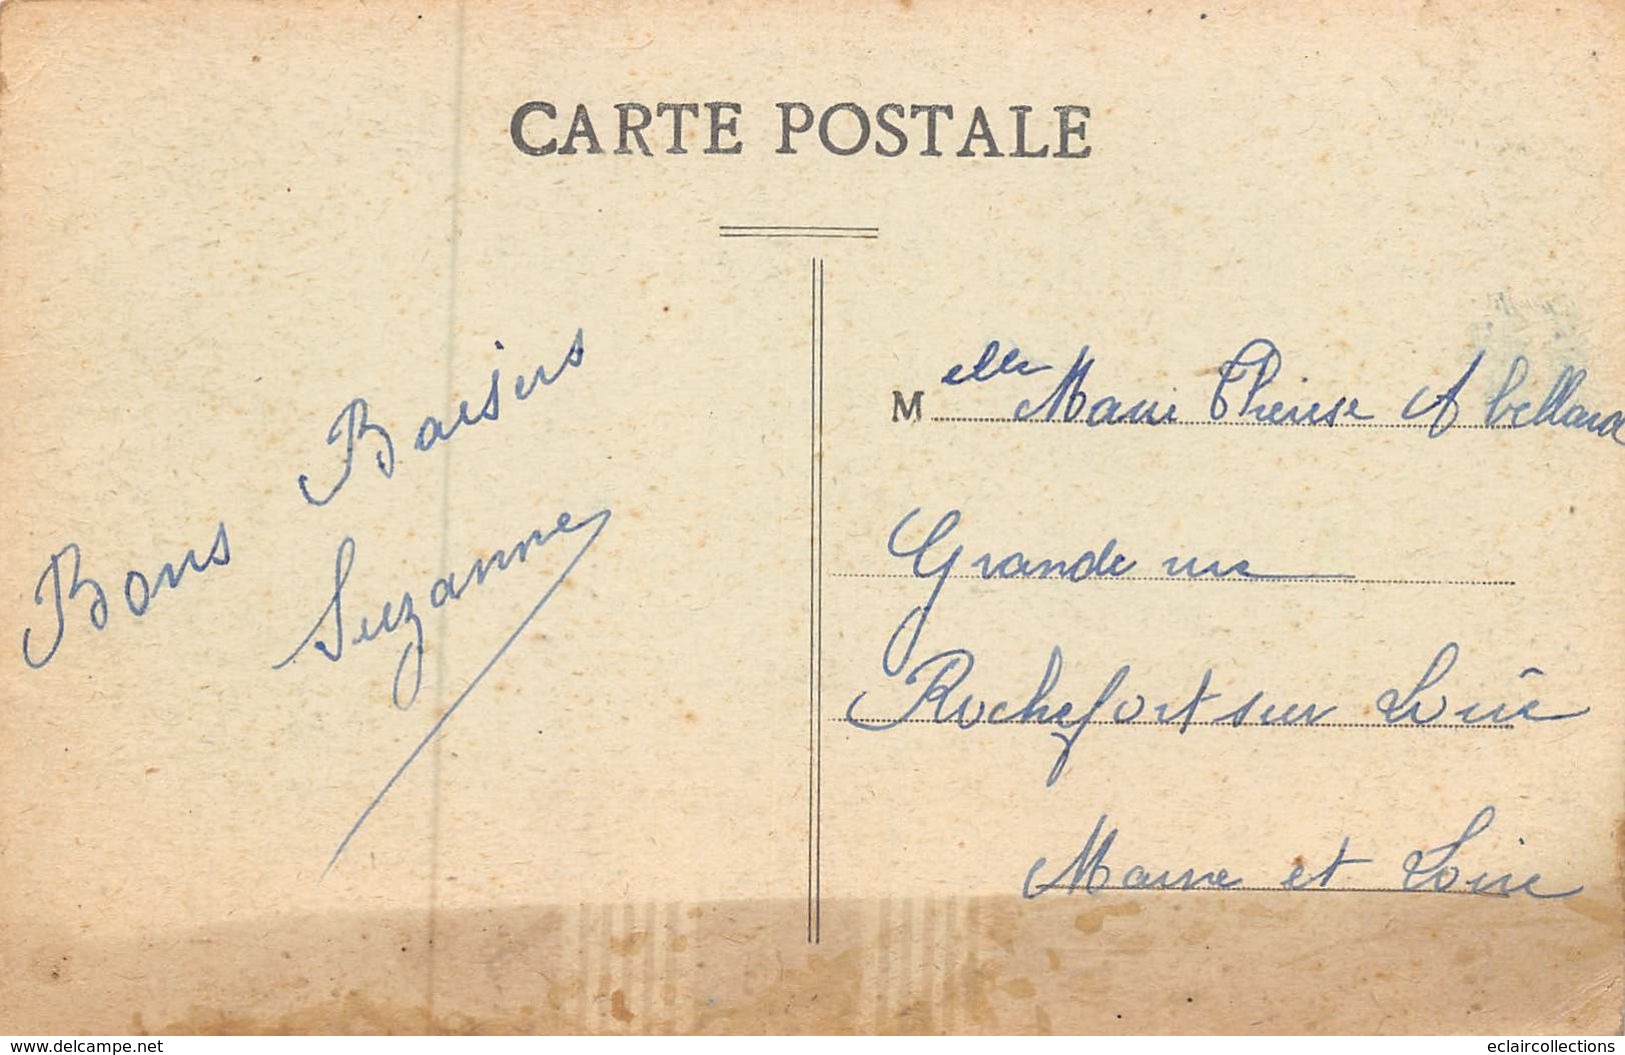 CARTE POSTALE
Bons Baisers
Suzanne
Melle Marie Thérèse Abellard
Grande rue
Rochefort sur Loire
Maine et Loire
www.delcampe.net
eclaircollections